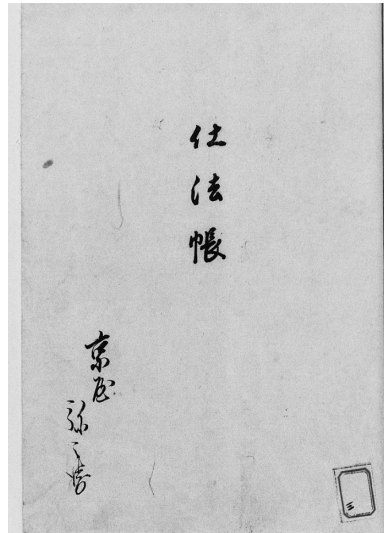 仕法帳
京屋
弥兵衛
三